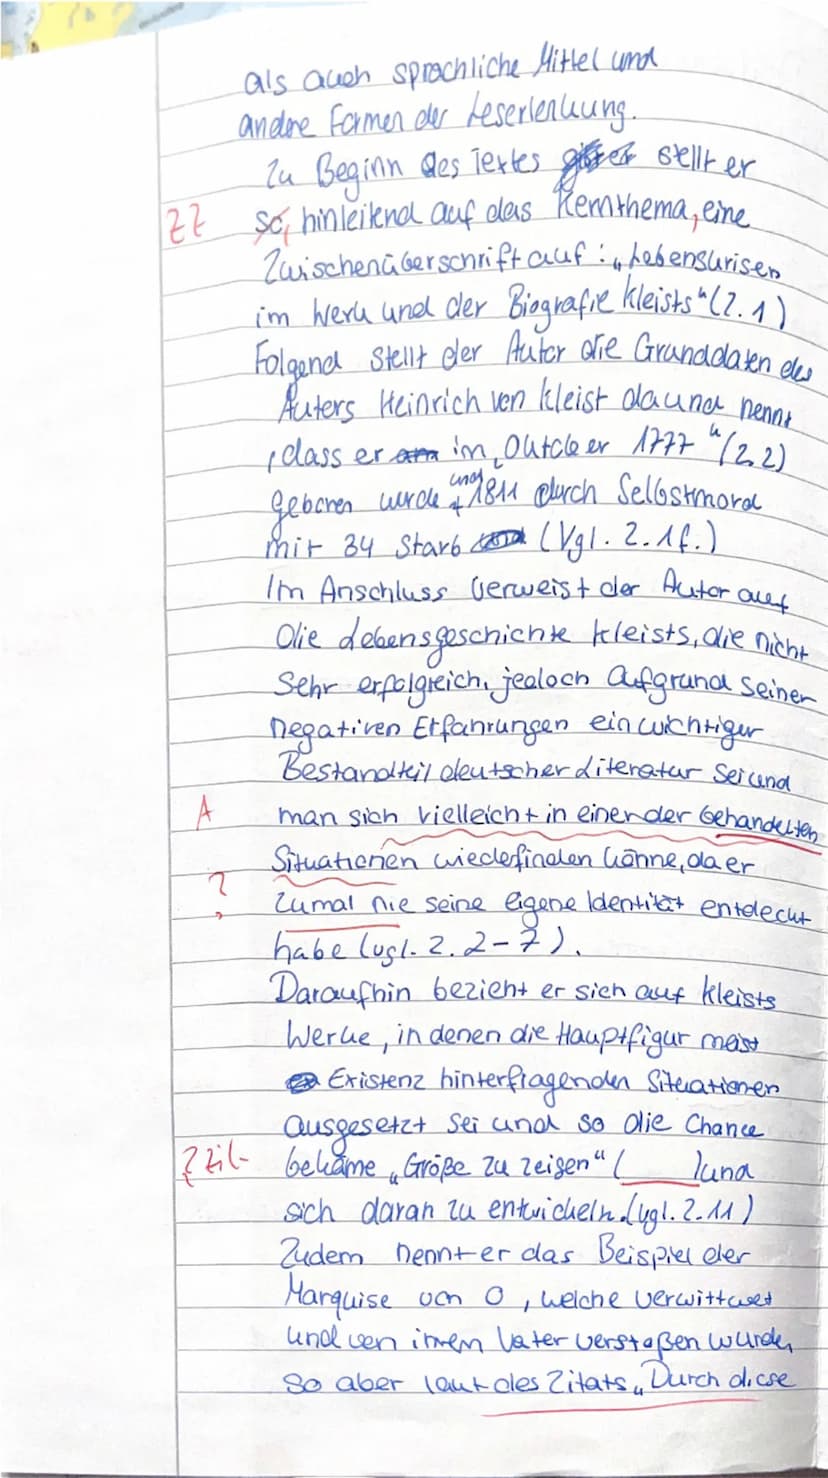 als auch sprachliche Mittel und
andre Formen der Leserlenkung.
Zu Beginn des Textes stellt er
ZZ so, hinleitend auf das Kernthema, eine
Zwischenüberschrift auf: „Lebenskrisen
im Werk und der Biografie Kleists“ (Z. 1)
Folgend stellt der Autor die Granddaten des
Autors Heinrich von Kleist da und nennt
, dass er im „Outcker 1777“ (Z. 2)
geboren wurde und 1811 durch Selbstmord
mit 34 starb (Vgl. Z. 1f.)
Im Anschluss verweist der Autor auf
die Lebensgeschichte Kleists, die nicht
sehr erfolgreich, jedoch aufgrund seiner
negativen Erfahrungen ein wichtiger
Bestandteil deutscher Literatur sei und
A man sich vielleicht in einer der behandelten
Situationen wiederfinden könne, da er
? zumal nie seine eigene Identität entdeckt
habe (vgl. Z. 2-7).
Daraufhin bezieht er sich auf Kleists
Werke, in denen die Hauptfigur meist
Existenz hinterfragenden Situationen
ausgesetzt sei und so die Chance
bekäme „Größe zu zeigen“ ( ) und
sich daran zu entwickeln. (vgl. Z. 11)
Zudem nennt er das Beispiel der
Marquise von O, welche verwittwet
und von ihrem Vater verstoßen wurde,
so aber laut des Zitats „Durch diese